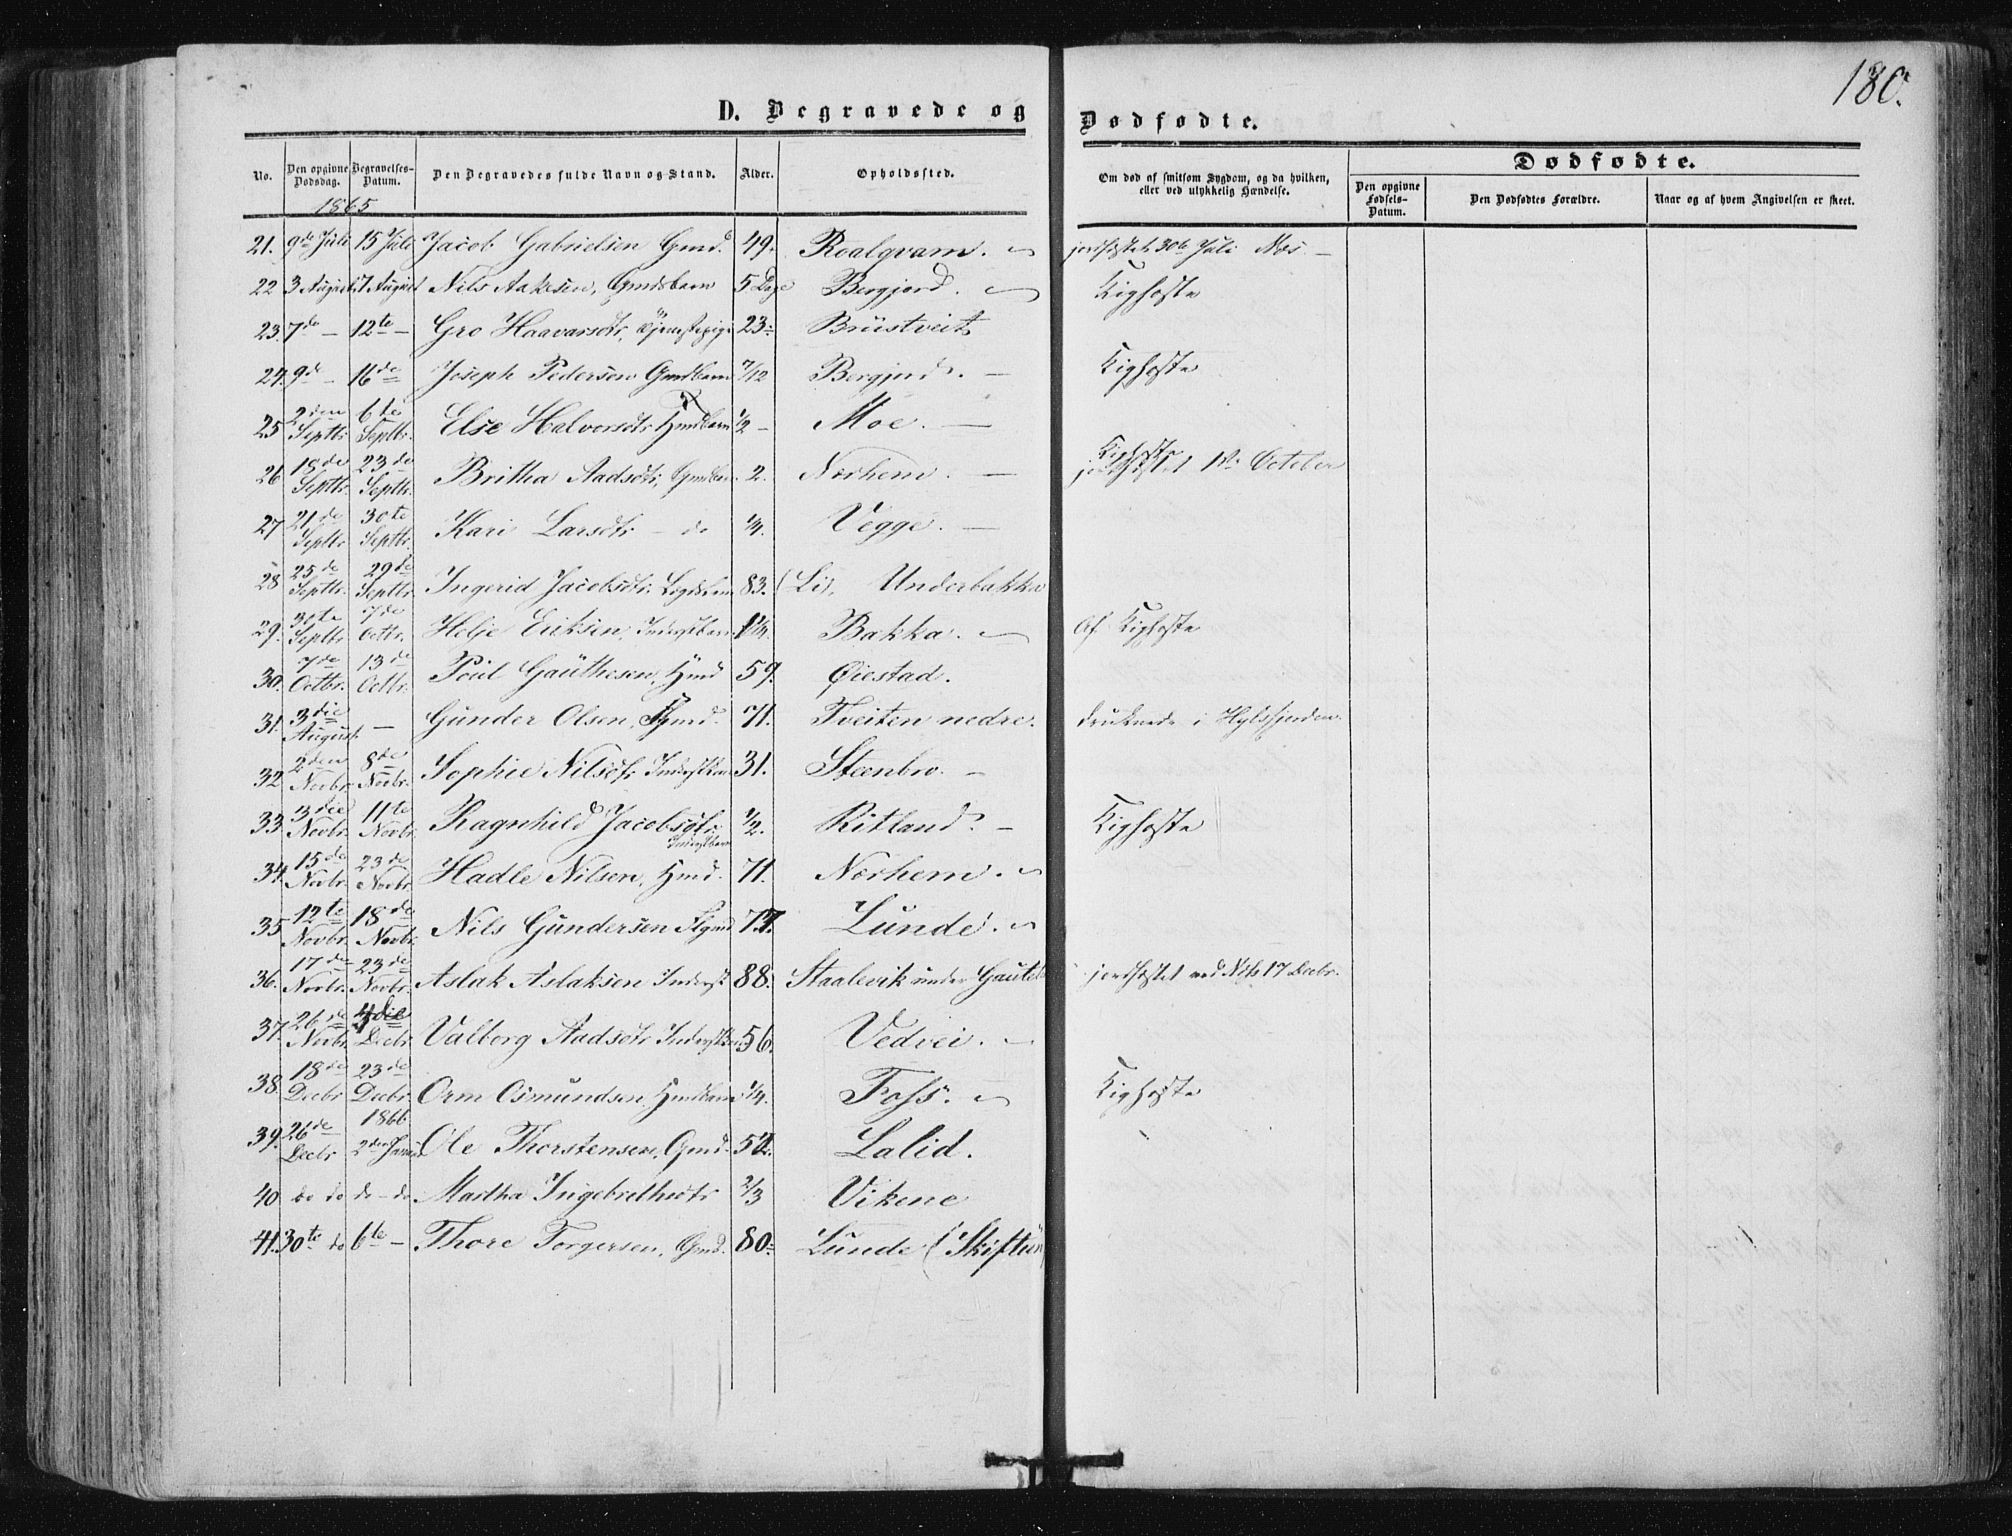 180.
D. Begravede og Dødfødte.
No.
Den opgivne Dødsdag.
Begravelses-Datum.
Den Begravedes fulde Navn og Stand.
Alder.
Opholdssted.
Om død af smitsom Sygdom, og da hvilken, eller ved ulykkelig Hændelse.
Dødfødte.
Den opgivne Fødsels-Datum.
Den Dødfødtes Forældre.
Naar og af hvem Angivelsen er skeet.
1865
21. 9de Juli 15 Juli Jacob Gabrielsen Gmd. 49. Roalqvam. jordfæstet 30te Juli Næs. –
22 3 August 17 August Nils Aakesen, Gmdsbarn 5 Dage Bergjord. Kighoste
23. 7de – 12te – Gro Haavarsdtr, Tjenestepige 23 Brüstveit
24. 9de – 16de Joseph Pedersen Gmdbarn 7/12 Bergjord. – Kighoste
25 2den Septbr. 6te Septbr. Else Halvorsdtr Hmdbarn 1/2 – Moe. –
26 18de Septbr. 23de Septbr. Britha Aadsdtr, Gmdbarn. 2. Nærhem. – Kighoste jordfæstet 1ste October
27 21de Septbr 30te Septbr. Kari Larsdtr – do 1/4. Vegge. –
28 25de Septbr. 29de Septbr. Ingerid Jacobsdtr. Lægdslem 83. (Li), Underbakka
29. 30te Septbr 7de Octbr. Helje Eriksen, Inderstbarn 1/4. Bakka. Af Kighoste
30. 7de Octbr. 13de Octbr. Poul Gauthesen, Hmd 59. Øiestad.
31. 3die August – Gunder Olsen, Fgmd. 71. Tveiten nedre. druknede i Hylsfjorden.
32 2den Novbr. 8de Novbr. Sophie Nilsdtr Inderstkone 31. Steenbro. –
33. 3die Novbr. 11te Novbr. Ragnhild Jacobsdtr. Inderstbarn 1/2. Ritland. – Kighoste
34. 15de Novbr. 23de Novbr. Hadle Nilsen, Hmd. 71. Nærhem.
35. 12te Novbr. 18de Novbr. Nils Gundersen Fgmd 77. Lunde.
36. 17de Novbr. 23de Novbr. Aslak Aslaksen Inderst 88. Staalevik under Gautel jordfæstet ved Næs 17 Decbr.
37. 26de Novbr. 4die Decbr. Valborg Aadsdtr Inderst 56. Vedvei. –
38. 18de Decbr 23de Decbr. Orm Osmundsen Hmdbarn 1/4. Foss. Kighoste
39. 26de Decbr 1866 2den Januar Ole Thorstensen, Gmd. 52. Lalid.
40 do do do – do Martha Ingebrethsdtr 2/3 Vikene
41. 30te do 6te – Thore Torgersen, Gmd. 80. Lunde (Skiftün)